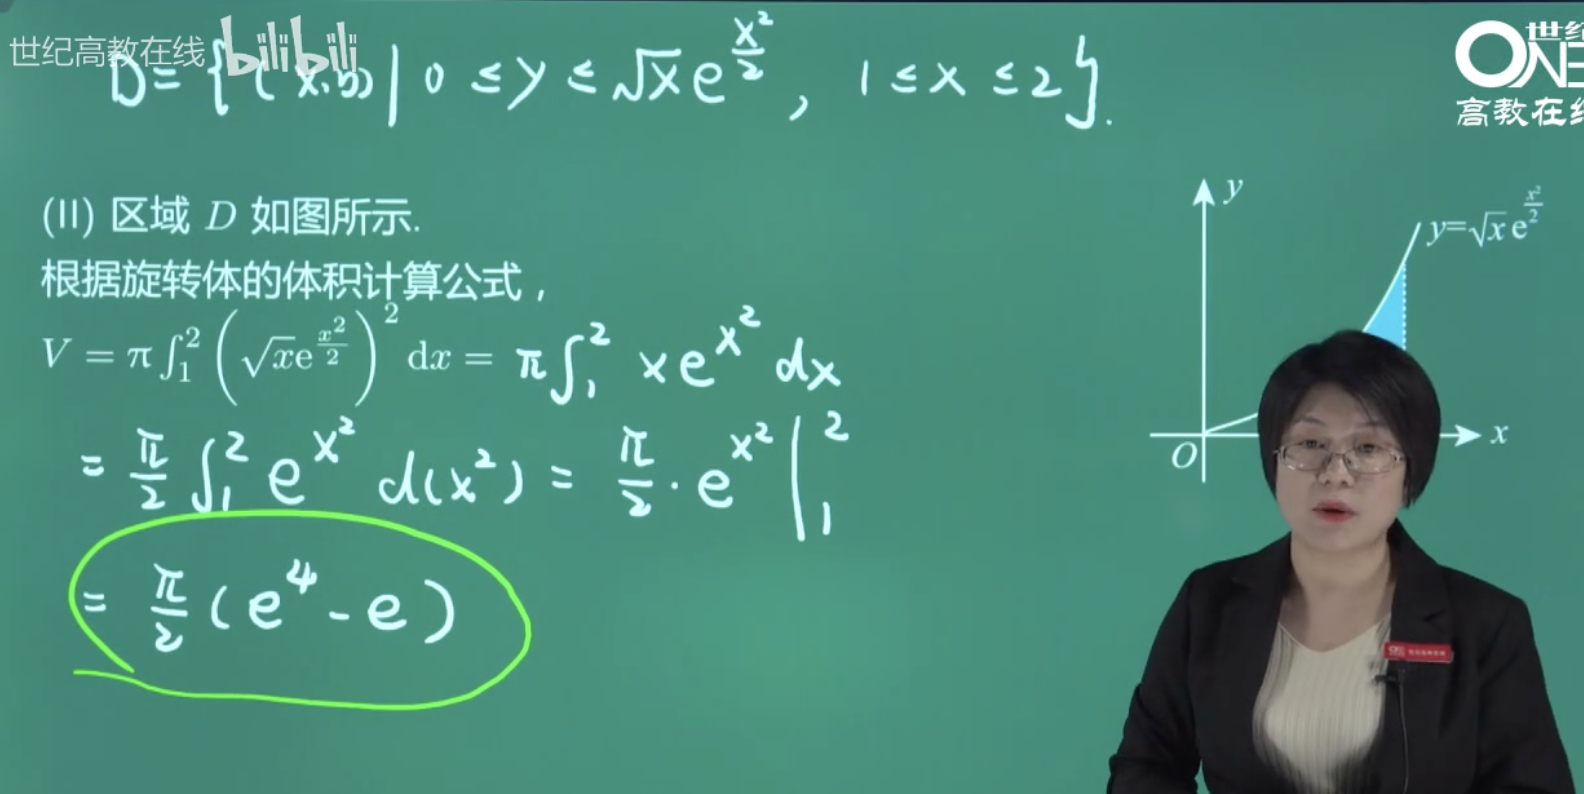 世纪高教在线 bilibili
D={(x,y)|0≤y≤√x e^{x²/2}, 1≤x≤2}.
世纪
ONE
高教在线
(II) 区域 D 如图所示.
根据旋转体的体积计算公式，
V = π∫₁² (√x e^{x²/2})² dx = π∫₁² x e^{x²} dx
= π/2 ∫₁² e^{x²} d(x²) = π/2 · e^{x²} |₁²
= π/2 (e⁴ - e)
y
y=√x e^{x²/2}
O
x